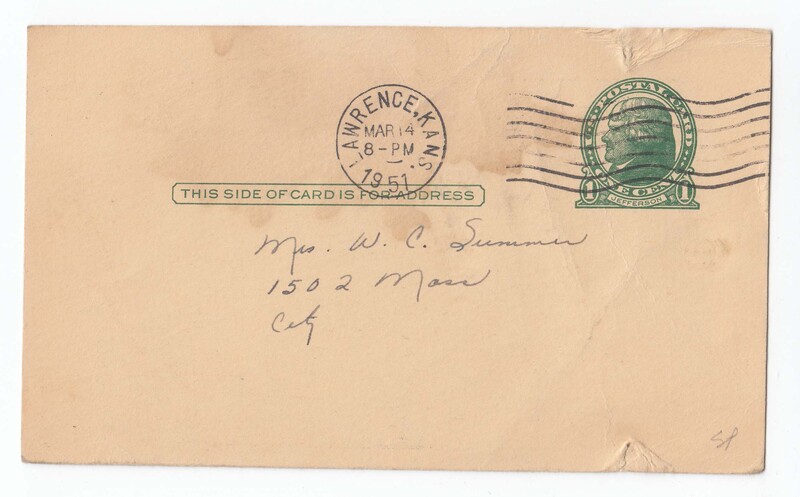 LAWRENCE, KANS.
MAR 14
8-PM
1951
U.S. POSTAL CARD
1 ONE CENT 1
JEFFERSON
THIS SIDE OF CARD IS FOR ADDRESS
Mrs. W. C. Summer
1502 Mass
City